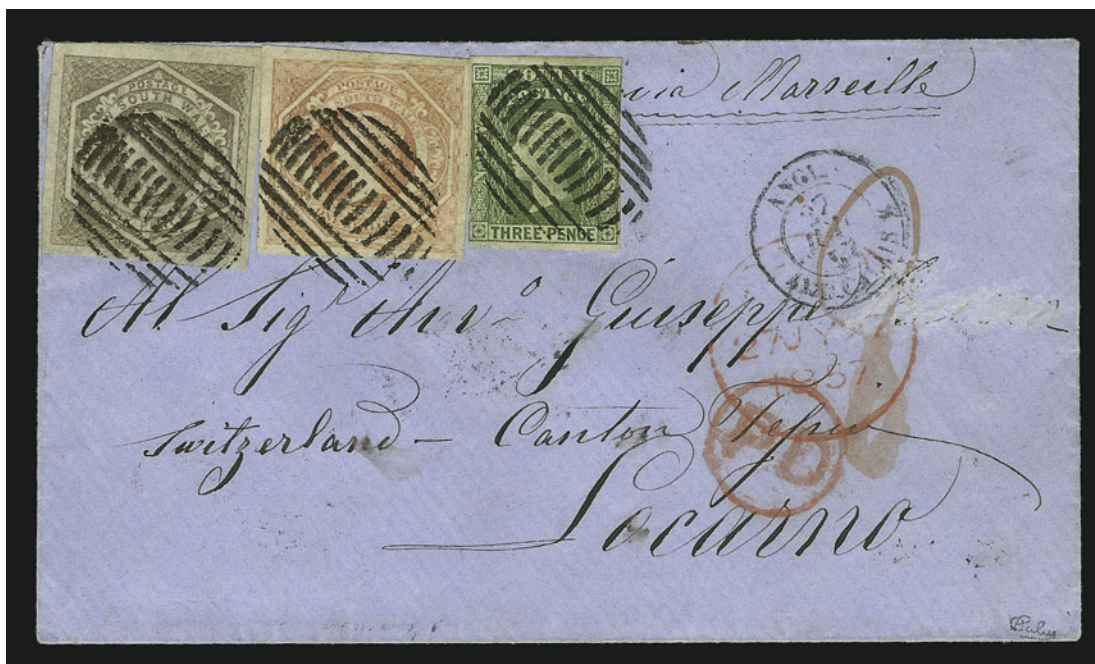 POSTAGE
SOUTH WA
POSTAGE
SOUTH WALE
POSTAGE
THREE PENCE
via Marseille
ANGL.
AMB. CALAIS
27
1857
PD
Al Sigr Avvo Giuseppe
Switzerland – Canton Tessin
Locarno